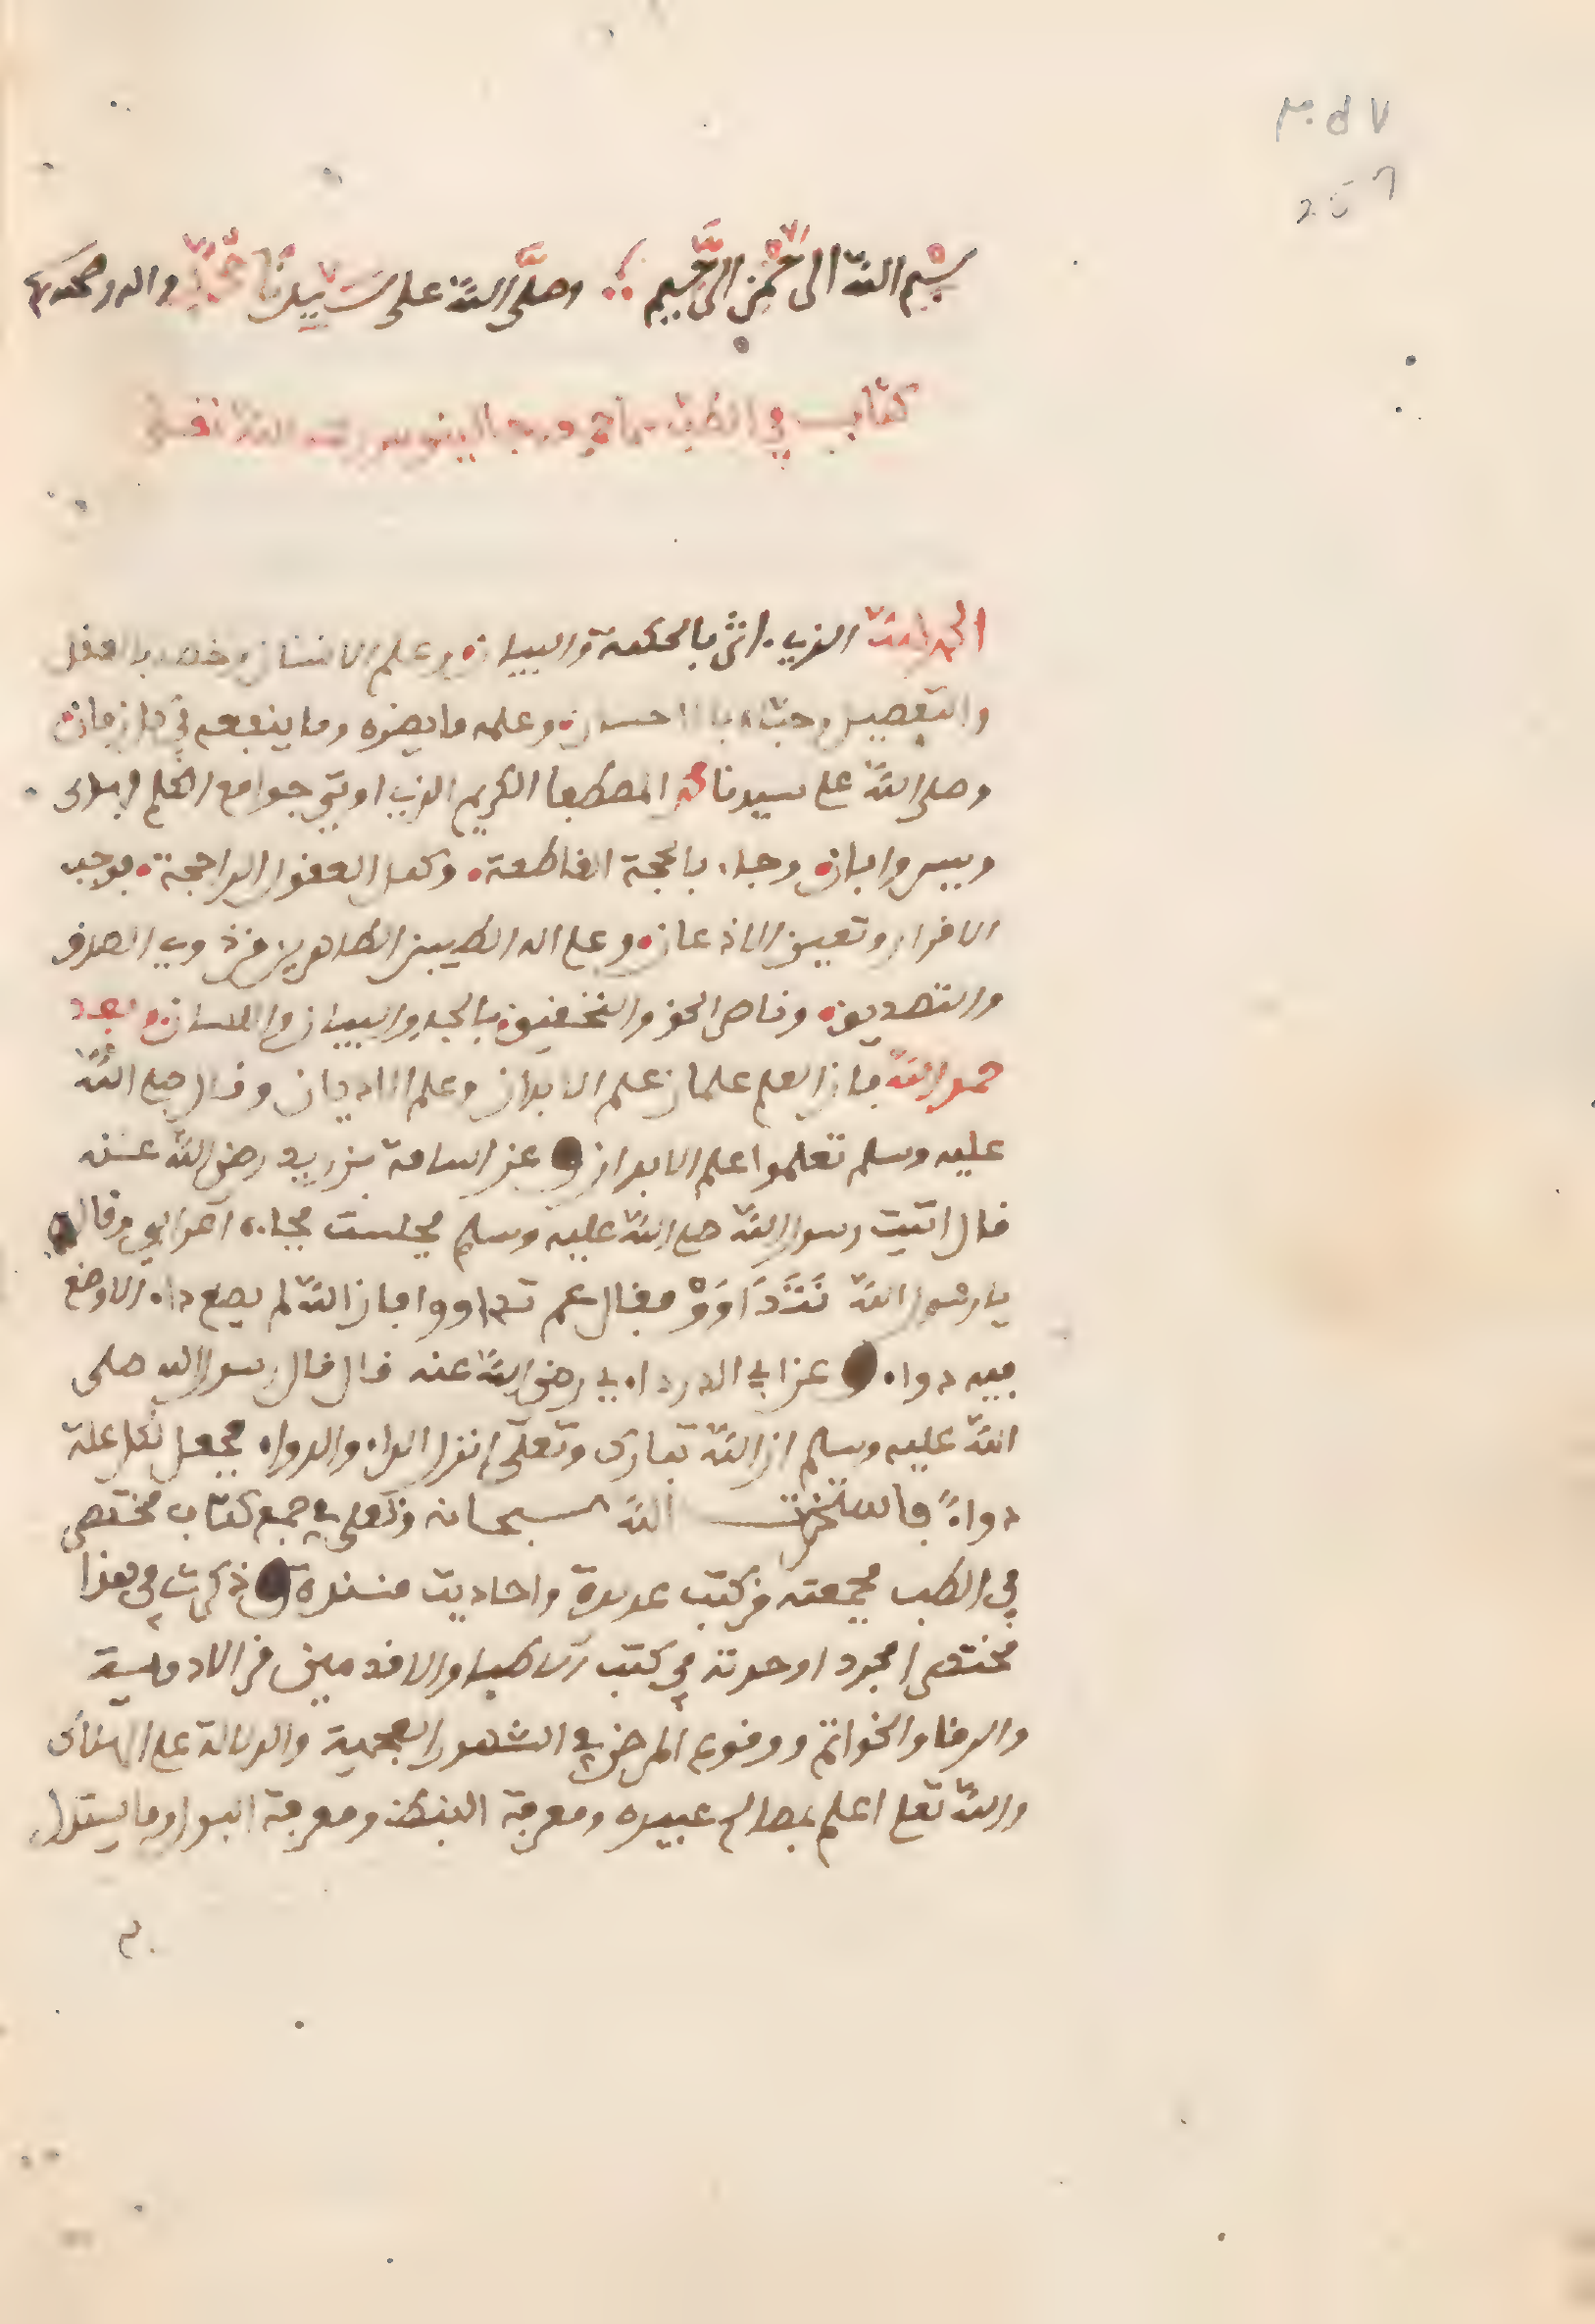 بسم الله الرحمن الرحيم وصلى الله على سيدنا محمد واله وصحبه
كتاب في الطب الله
الحمد لله الذي بالحكمة والبيان وعلم الانسان وخصه بالعقل
والتفصيل بالاحسان وعلمه ما يضره وما ينفعه في كل زمان
وصلى الله على سيدنا محمد المصطفا الكريم الذي اوتي جوامع الكلم
وبين وابان وجاء بالحجة القاطعة وكمل العقول الراجحة بوجب
الاقرار وتعيين الاذعان وعلى اله الطيبين الطاهرين ذوي الصدق
والتصديق وناصر الحق والتحقيق والبيان واللسان وبعد
حمد الله فان العلم علمان علم الابدان وعلم الاديان وقال صلى الله
عليه وسلم تعلموا علم الابدان وعن اسامة بن زيد رضي الله عنه
قال اتيت رسول الله صلى الله عليه وسلم فجلست فجاء اعرابي وقال
يا رسول الله نَتَدَاوَوْ فقال نعم تداووا فان الله لم يضع داء الا وضع
فيه دواء وعن ابي الدرداء رضي الله عنه قال قال رسول الله صلى
الله عليه وسلم ان الله تبارك وتعلى انزل الداء والدواء فجعل لكل علة
دواءً فاستخرت الله سبحانه وتعلى في جمع كتاب مختصر
في الطب فجمعته من كتب عديدة واحاديث مسندة وذكرت في هذا
مختصرا في كتب الاطبا والاقدمين من الادوية
والرقا والخواتم ووقوع المرض في الشهور العجمية والدلالة على
والله تعلى اعلم بمصالح عبيده ومعرفة ومعرفة البول وما يستدل